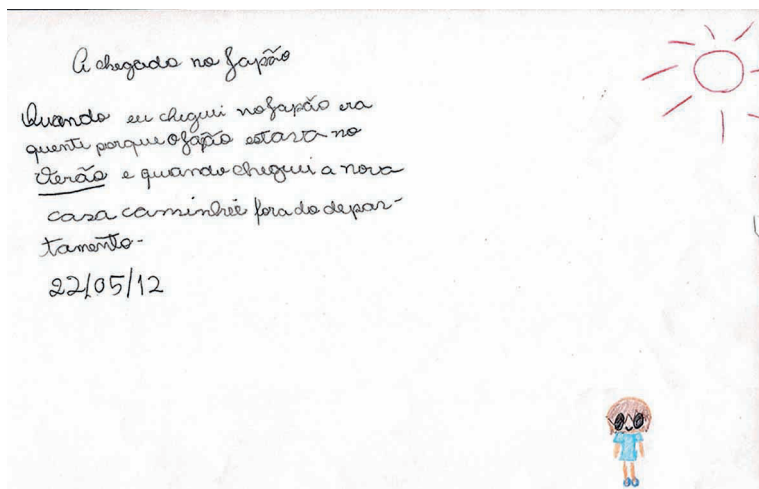 A chegada no Japão
Quando eu chegui no Japão era
quente porque o Japão estava no
Verão e quando chegui a nova
casa caminhei fora do depar-
tamento-
22/05/12